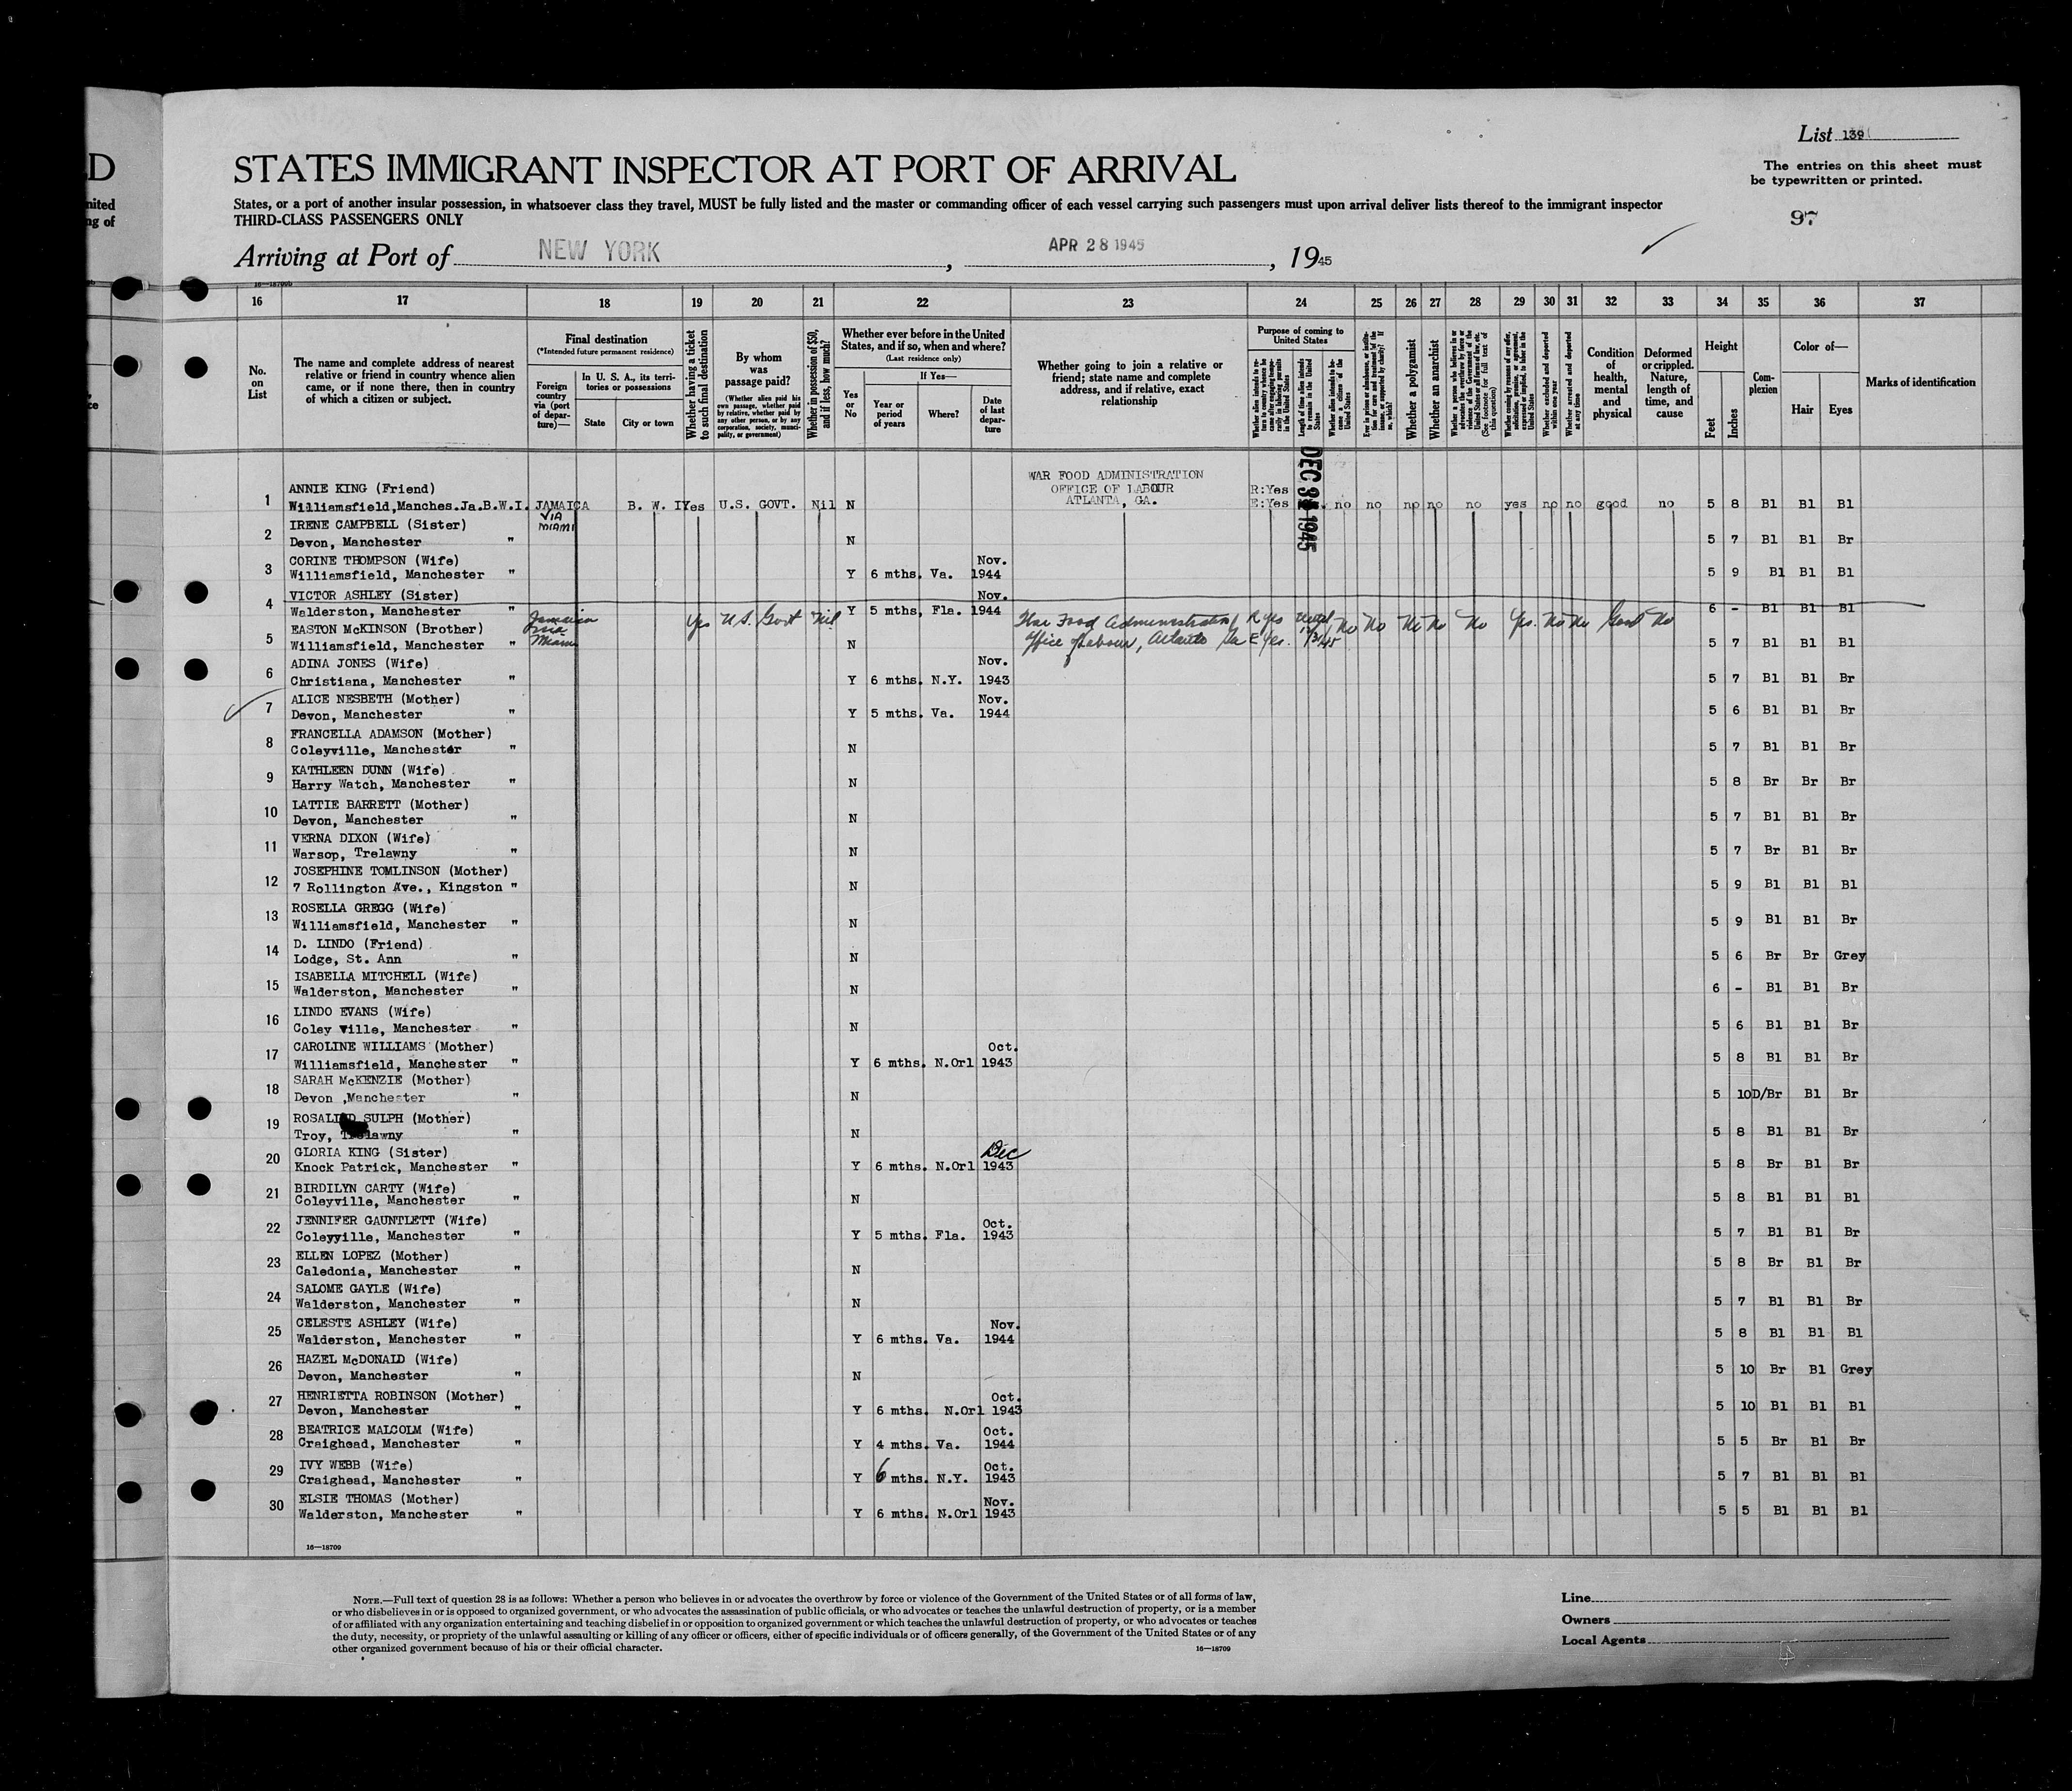 List 139
The entries on this sheet must
be typewritten or printed.
97
D
STATES IMMIGRANT INSPECTOR AT PORT OF ARRIVAL
nited
ng of
States, or a port of another insular possession, in whatsoever class they travel, MUST be fully listed and the master or commanding officer of each vessel carrying such passengers must upon arrival deliver lists thereof to the immigrant inspector
THIRD-CLASS PASSENGERS ONLY
Arriving at Port of NEW YORK, APR 28 1945, 1945
16 17 18 19 20 21 22 23 24 25 26 27 28 29 30 31 32 33 34 35 36 37
No. on List
The name and complete address of nearest relative or friend in country whence alien came, or if none there, then in country of which a citizen or subject.
Final destination
(*Intended future permanent residence)
Foreign country via (port of departure)—
In U. S. A., its territories or possessions
State City or town
Whether having a ticket to such final destination
By whom was passage paid?
(Whether alien paid his own passage, whether paid by relative, whether paid by any other person, or by any corporation, society, municipality, or government)
Whether in possession of $50, and if less, how much?
Whether ever before in the United States, and if so, when and where?
(Last residence only)
Yes or No
If Yes—
Year or period of years
Where?
Date of last departure
Whether going to join a relative or friend; state name and complete address, and if relative, exact relationship
Purpose of coming to United States
Length of time alien intends to remain in the United States
Whether alien intends to become a citizen of the United States
Whether a polygamist
Whether an anarchist
Whether excluded and deported within one year
Whether arrested and deported at any time
Condition of health, mental and physical
Deformed or crippled. Nature, length of time, and cause
Height
Feet Inches
Complexion
Color of—
Hair Eyes
Marks of identification
WAR FOOD ADMINISTRATION
OFFICE OF LABOUR
ATLANTA, GA.
DEC 31 1945
1 ANNIE KING (Friend)
Williamsfield,Manches.Ja.B.W.I. JAMAICA B. W. I Yes U.S. GOVT. Nil N R:Yes E:Yes no no no no no yes no no good no 5 8 Bl Bl Bl
VIA
MIAMI
2 IRENE CAMPBELL (Sister)
Devon, Manchester " N 5 7 Bl Bl Br
3 CORINE THOMPSON (Wife) Nov.
Williamsfield, Manchester " Y 6 mths. Va. 1944 5 9 Bl Bl Bl
4 VICTOR ASHLEY (Sister) Nov.
Walderston, Manchester " Y 5 mths, Fla. 1944 6 - Bl Bl Bl
Jamaica via Miami Yes U.S. Govt Nil War Food Administration R Yes Until No No No No No Yes. No No Good No
Office of Labour, Atlanta Ga E Yes. 12/31/45
5 EASTON McKINSON (Brother)
Williamsfield, Manchester " N 5 7 Bl Bl Bl
6 ADINA JONES (Wife) Nov.
Christiana, Manchester " Y 6 mths. N.Y. 1943 5 7 Bl Bl Br
7 ALICE NESBETH (Mother) Nov.
Devon, Manchester " Y 5 mths. Va. 1944 5 6 Bl Bl Br
8 FRANCELLA ADAMSON (Mother)
Coleyville, Manchester " N 5 7 Bl Bl Br
9 KATHLEEN DUNN (Wife)
Harry Watch, Manchester " N 5 8 Br Br Br
10 LATTIE BARRETT (Mother)
Devon, Manchester " N 5 7 Bl Bl Br
11 VERNA DIXON (Wife)
Warsop, Trelawny " N 5 7 Br Bl Br
12 JOSEPHINE TOMLINSON (Mother)
7 Rollington Ave., Kingston " N 5 9 Bl Bl Bl
13 ROSELLA GREGG (Wife)
Williamsfield, Manchester " N 5 9 Bl Bl Br
14 D. LINDO (Friend)
Lodge, St. Ann " N 5 6 Br Br Grey
15 ISABELLA MITCHELL (Wife)
Walderston, Manchester " N 6 - Bl Bl Br
16 LINDO EVANS (Wife)
Coley ville, Manchester " N 5 6 Bl Bl Br
17 CAROLINE WILLIAMS (Mother) Oct.
Williamsfield, Manchester " Y 6 mths. N.Orl 1943 5 8 Bl Bl Br
18 SARAH McKENZIE (Mother)
Devon ,Manchester " N 5 10 D/Br Bl Br
19 ROSALIND SULPH (Mother)
Troy, Trelawny " N 5 8 Bl Bl Br
20 GLORIA KING (Sister) Dec
Knock Patrick, Manchester " Y 6 mths. N.Orl 1943 5 8 Br Bl Br
21 BIRDILYN CARTY (Wife)
Coleyville, Manchester " N 5 8 Bl Bl Bl
22 JENNIFER GAUNTLETT (Wife) Oct.
Coleyyille, Manchester " Y 5 mths. Fla. 1943 5 7 Bl Bl Br
23 ELLEN LOPEZ (Mother)
Caledonia, Manchester " N 5 8 Br Bl Br
24 SALOME GAYLE (Wife)
Walderston, Manchester " N 5 7 Bl Bl Br
25 CELESTE ASHLEY (Wife) Nov.
Walderston, Manchester " Y 6 mths. Va. 1944 5 8 Bl Bl Bl
26 HAZEL McDONALD (Wife)
Devon, Manchester " N 5 10 Br Bl Grey
27 HENRIETTA ROBINSON (Mother) Oct.
Devon, Manchester " Y 6 mths. N.Orl 1943 5 10 Bl Bl Bl
28 BEATRICE MALCOLM (Wife) Oct.
Craighead, Manchester " Y 4 mths. Va. 1944 5 5 Br Bl Br
29 IVY WEBB (Wife) Oct.
Craighead, Manchester " Y 6 mths. N.Y. 1943 5 7 Bl Bl Bl
30 ELSIE THOMAS (Mother) Nov.
Walderston, Manchester " Y 6 mths. N.Orl 1943 5 5 Bl Bl Bl
16—18709
NOTE.—Full text of question 28 is as follows: Whether a person who believes in or advocates the overthrow by force or violence of the Government of the United States or of all forms of law,
or who disbelieves in or is opposed to organized government, or who advocates the assassination of public officials, or who advocates or teaches the unlawful destruction of property, or is a member
of or affiliated with any organization entertaining and teaching disbelief in or opposition to organized government or which teaches the unlawful destruction of property, or who advocates or teaches
the duty, necessity, or propriety of the unlawful assaulting or killing of any officer or officers, either of specific individuals or of officers generally, of the Government of the United States or of any
other organized government because of his or their official character.
16—18709
Line
Owners
Local Agents